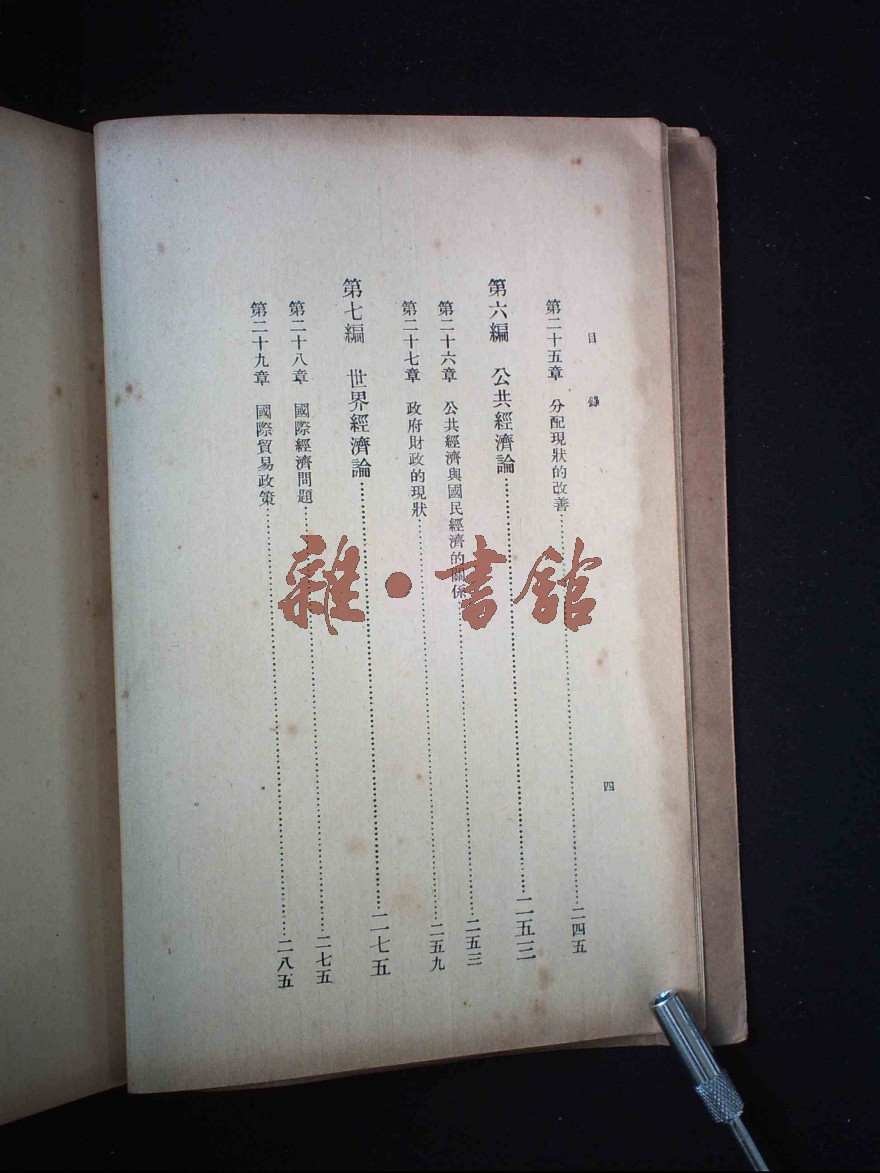 目錄
四
第二十五章 分配現狀的改善……二四五
第六編 公共經濟論……二五三
第二十六章 公共經濟與國民經濟的關係……二五三
第二十七章 政府財政的現狀……二五九
第七編 世界經濟論……二七五
第二十八章 國際經濟問題……二七五
第二十九章 國際貿易政策……二八五
雜·書館